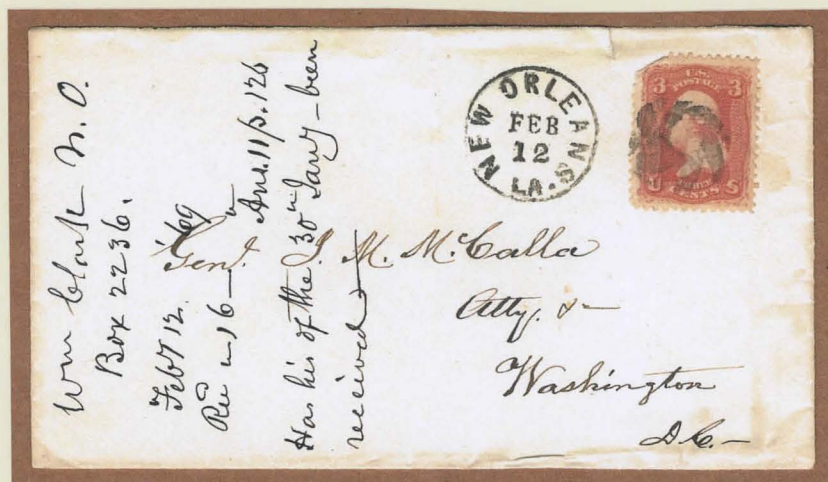 Wm Clark N. O.
Box 2236.
Feby 12. '69
Rec 16 — Ans. 11/3. 126
Has his of the 30" Jany - been
received
NEW ORLEANS
FEB
12
LA.
3 U.S. 3
POSTAGE
U THREE S
CENTS
Genl. J. M. McCalla
Atty. &c
Washington
D.C. -